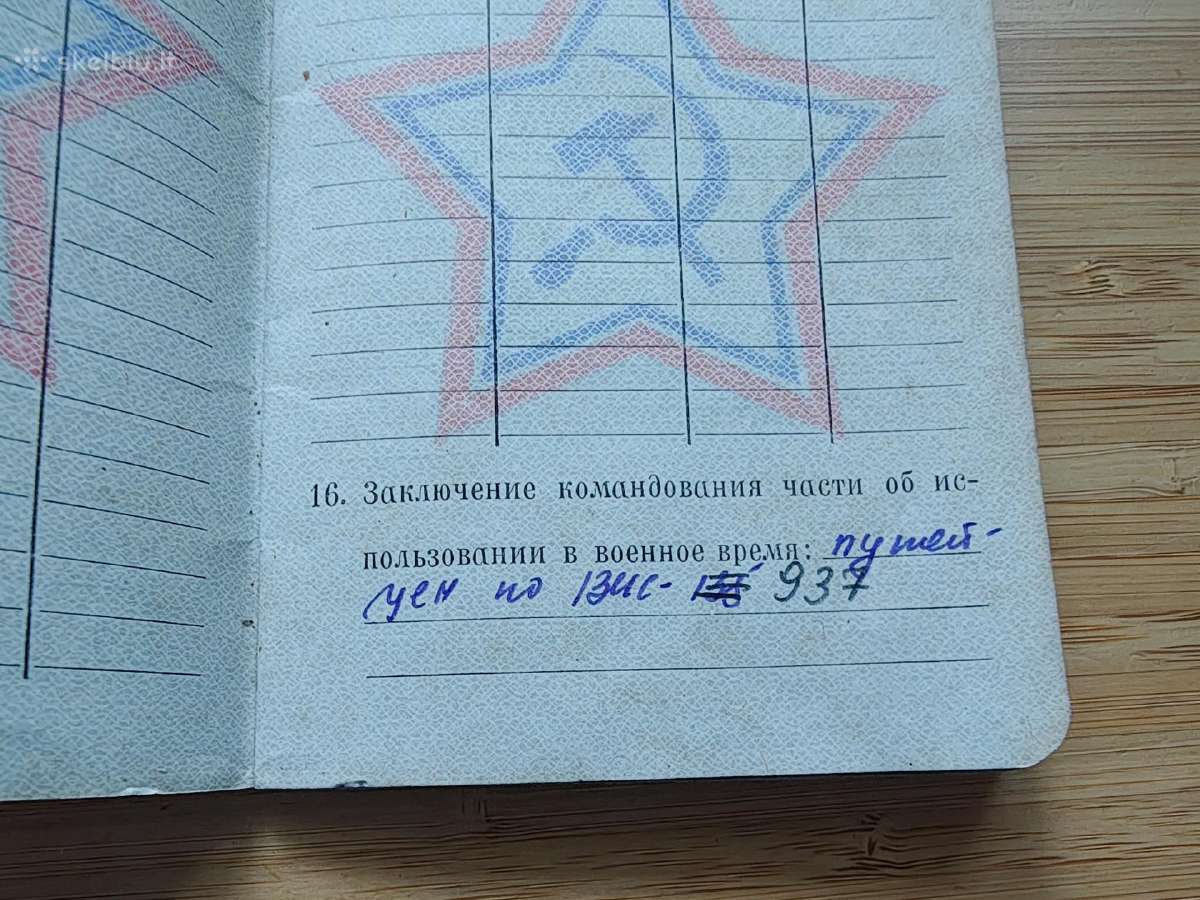 skelbiu.lt
16. Заключение командования части об ис-
пользовании в военное время: путей-
цен по ВУС- 937